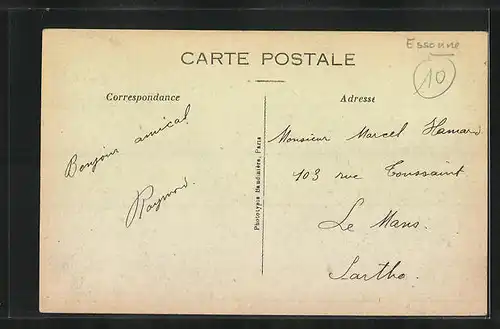 Essonne
10
CARTE POSTALE
Correspondance
Adresse
Bonjour amical
Raymond.
Phototypie Baudinière, Paris
Monsieur Marcel Hamard
103 rue Toussaint
Le Mans.
Sarthe.